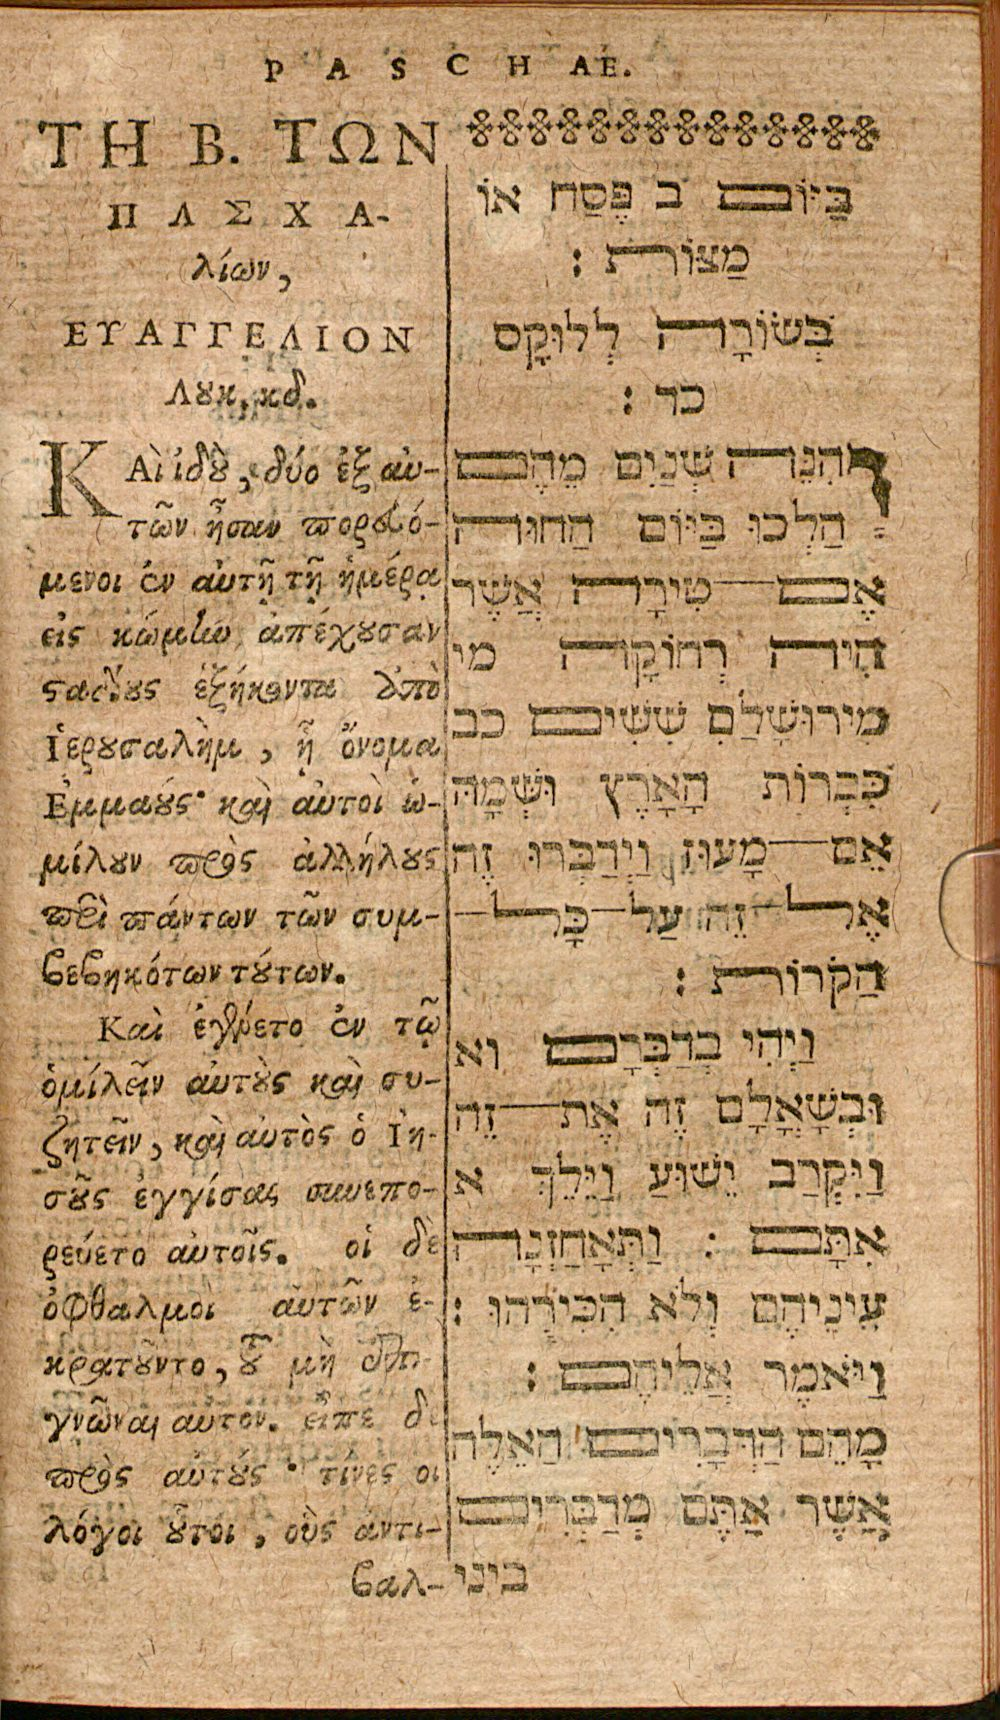 PASCHAE.
ΤΗ Β. ΤΩΝ
ΠΑΣΧΑ-
λίων,
ΕΥΑΓΓΕΛΙΟΝ
Λουκ. κδ.
ΚΑὶ ἰδοὺ, δύο ἐξ αὐ-
τῶν ἦσαν πορευό-
μενοι ἐν αὐτῇ τῇ ἡμέρᾳ
εἰς κώμην ἀπέχουσαν
σταδίους ἑξήκοντα ἀπὸ
Ἱερουσαλὴμ, ᾗ ὄνομα
Ἐμμαούς· καὶ αὐτοὶ ὡ-
μίλουν πρὸς ἀλλήλους
περὶ πάντων τῶν συμ-
βεβηκότων τούτων.
Καὶ ἐγένετο ἐν τῷ
ὁμιλεῖν αὐτοὺς καὶ συ-
ζητεῖν, καὶ αὐτὸς ὁ Ἰη-
σοῦς ἐγγίσας συνεπο-
ρεύετο αὐτοῖς. οἱ δὲ
ὀφθαλμοὶ αὐτῶν ἐ-
κρατοῦντο, τοῦ μὴ ἐπι-
γνῶναι αὐτόν. εἶπε δὲ
πρὸς αὐτούς· τίνες οἱ
λόγοι οὗτοι, οὓς ἀντι-
βαλ-
בַּיּוֹם ב פֶּסַח אוֹ
מַצּוֹת :
בְּשׂוֹרָה לְלוּקָס
כד :
וְהִנֵּה שְׁנַיִם מֵהֶם
הָלְכוּ בַּיּוֹם הַהוּא
אֶל־טִירָה אֲשֶׁר
הִיה רְחוֹקָה מי
מִירוּשָׁלַםִ שִׁשִּׁים כב
כִּבְרוֹת הָאָרֶץ וּשְׁמָהּ
אֶם־מָעוּז וַיְדַבְּרוּ זֶה
אֶל־זֶה עַל־כָּל־
הַקֹּרוֹת :
וַיְהִי בְדַבְּרָם וא
וּבְשָׁאֳלָם זֶה אֶת־זֶה
וַיִּקְרַב יֵשׁוּעַ וַיֵּלֵךְ א
אִתָּם : וַתֹּאחַזְנָה
עֵינֵיהֶם וְלֹא הִכִּירֻהוּ :
וַיֹּאמֶר אֲלֵיהֶם :
מָהֵם הַדְּבָרִים הָאֵלֶּה
אֲשֶׁר אַתֶּם מְדַבְּרִים
ביני